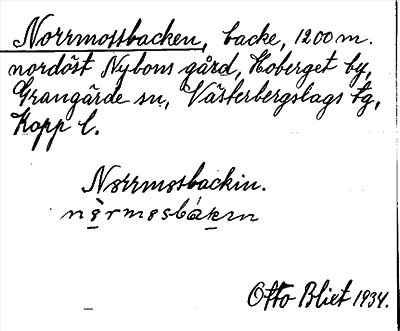 Norrmossbacken, backe, 1200 m.
nordöst Nybons gård, Hoberget by,
Grangärde sn, Västerbergslags tg,
Kopp l.
Nørrmøsbackin.
Otto Blixt 1934.